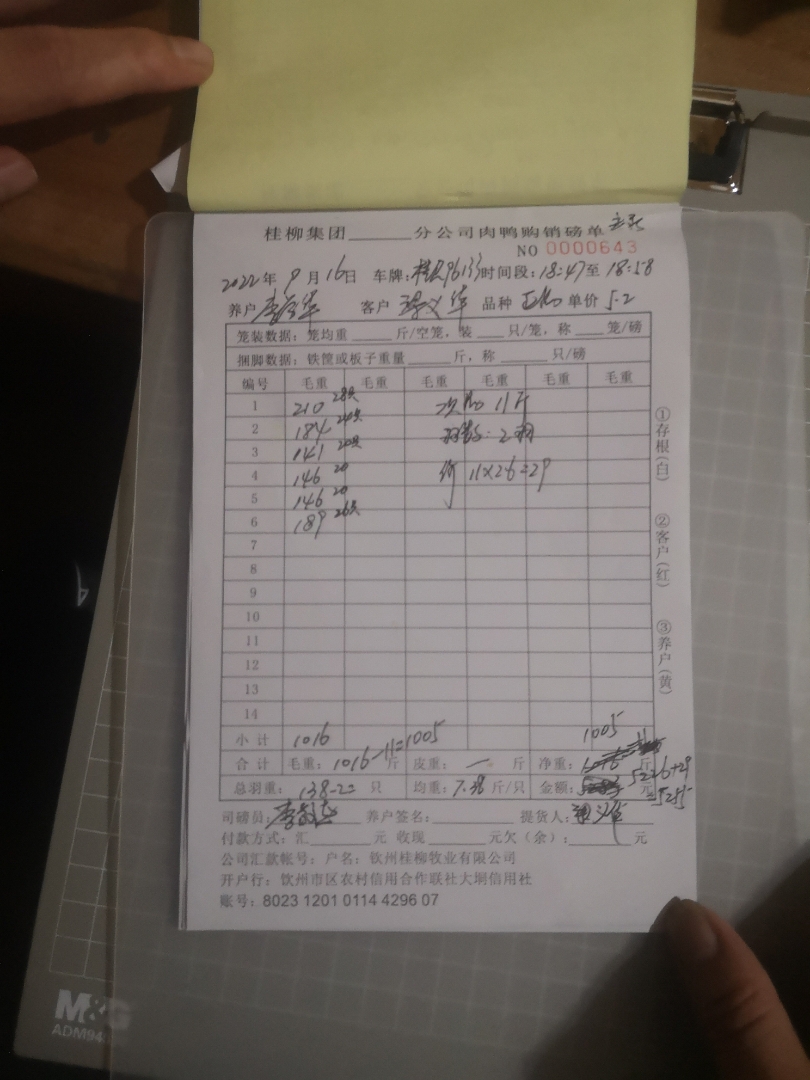 桂柳集团______分公司肉鸭购销磅单
NO 0000643
2022年 9月16日 车牌: 时间段:18:47至18:58
养户 客户 义华 品种 单价 5.2
笼装数据:笼均重____斤/空笼,装____只/笼,称____笼/磅
捆脚数据:铁筐或板子重量____斤,称____只/磅
编号 毛重 毛重 毛重 毛重 毛重 毛重
1 210 28只 次 11斤
2 184 : 2羽
3 141 20只
4 146 20 11×2.6=29
5 146 20
6 189 26只
7
8
9
10
11
12
13
14
小计 1016 1005
合计 毛重:1016-11=1005斤 皮重: 一 斤 净重: 斤
总羽重: 138-2= 只 均重:7.38斤/只 金额: 元 5226+29
=5255
司磅员: 养户签名: 提货人: 义华
付款方式:汇____元 收现____元欠(余):____元
公司汇款帐号:户名:钦州桂柳牧业有限公司
开户行:钦州市区农村信用合作联社大垌信用社
账号:8023 1201 0114 4296 07
①存根(白)
②客户(红)
③养户(黄)
M&G